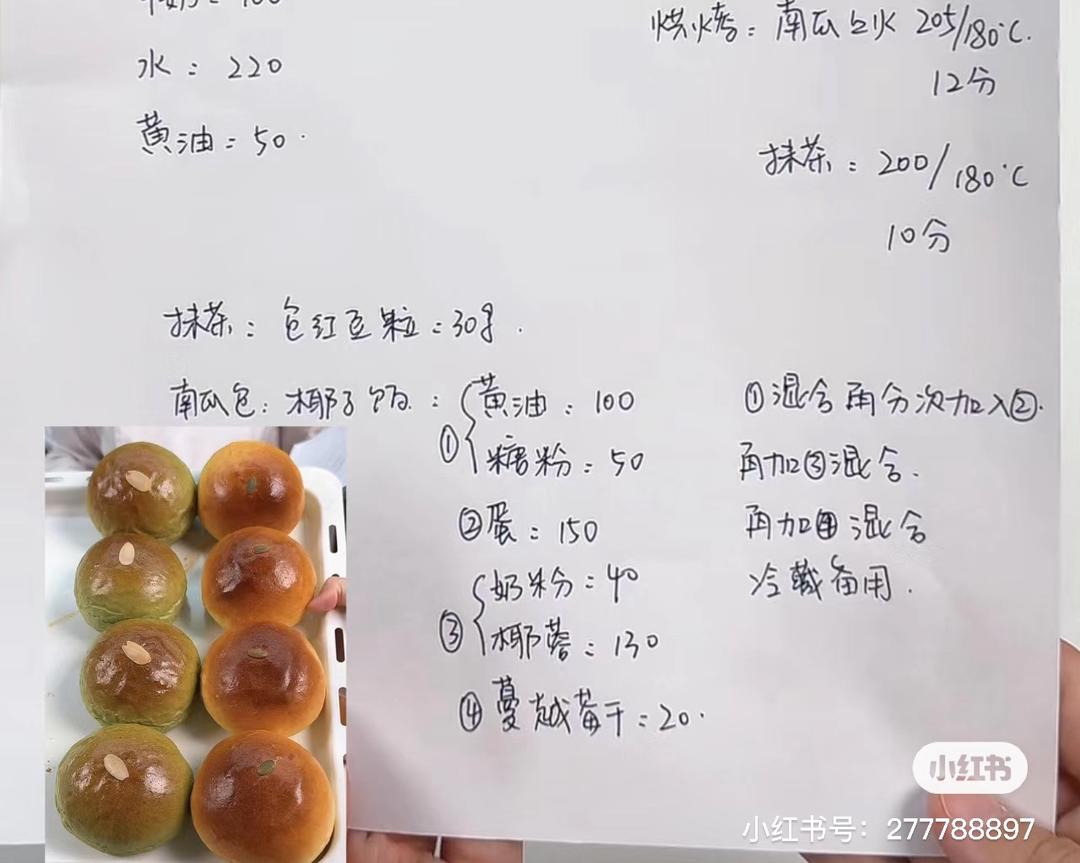 水：220
黄油：50.
烘烤：南瓜上火 205/180°C.
12分
抹茶：200/180°C
10分
抹茶：包红豆粒：30g.
南瓜包：椰子馅：
① 黄油：100
糖粉：50
②蛋：150
③ 奶粉：40
椰蓉：130
④蔓越莓干：20.
①混合再分次加入②.
再加③混合.
再加④混合
冷藏备用.
小红书
小红书号：277788897